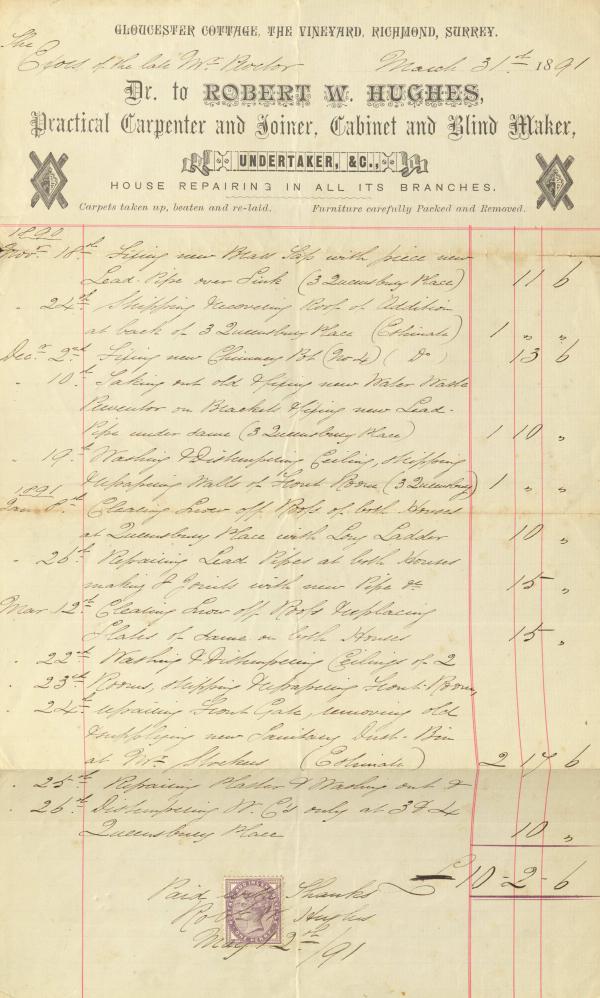 GLOUCESTER COTTAGE, THE VINEYARD, RICHMOND, SURREY.
The
Exors of the late Mr Boctor March 31st 1891
Dr. to ROBERT W. HUGHES,
Practical Carpenter and Joiner, Cabinet and Blind Maker,
UNDERTAKER, &C.,
HOUSE REPAIRING IN ALL ITS BRANCHES.
Carpets taken up, beaten and re-laid. Furniture carefully Packed and Removed.
1890
Novr 18th Fixing new Brass Tap with piece new
Lead Pipe over Sink (3 Queensbury Place) 11 6
" 24th Stripping & recovering Roof of Addition
at back of 3 Queensbury Place (Estimate) 1 " "
Decr 2nd Fixing new Chimney Pot (No 4) (Do) 13 6
" 10th Taking out old & fixing new Water Waste
Preventor on Brackets & fixing new Lead-
Pipe under same (3 Queensbury Place) 1 10 "
" 19th Washing & Distempering Ceiling, stripping
& repapering Walls of Front Room (3 Queensbury) 1 " "
1891
Jan 8th Clearing Snow off Roofs of both Houses
at Queensbury Place with Long Ladder 10 "
" 26th Repairing Lead Pipes at both Houses
making 8 Joints with new Pipe &c 15 "
Mar 12th Clearing Snow off Roofs & replacing
Slates of same on both Houses 15 "
" 22nd Washing & Distempering Ceilings of 2
" 23rd Rooms, stripping & repapering Front Room,
" 24th repairing Front Gate, removing old
& supplying new Sanitary Dust-Bin
at Mrs Stockens (Estimate) 2 17 6
" 25th Repairing Plaster & Washing out &
" 26th Distempering W.C's only at 3 & 4
Queensbury Place 10 "
£10-2-6
Paid with Thanks
Robt W Hughes
May 2nd/91